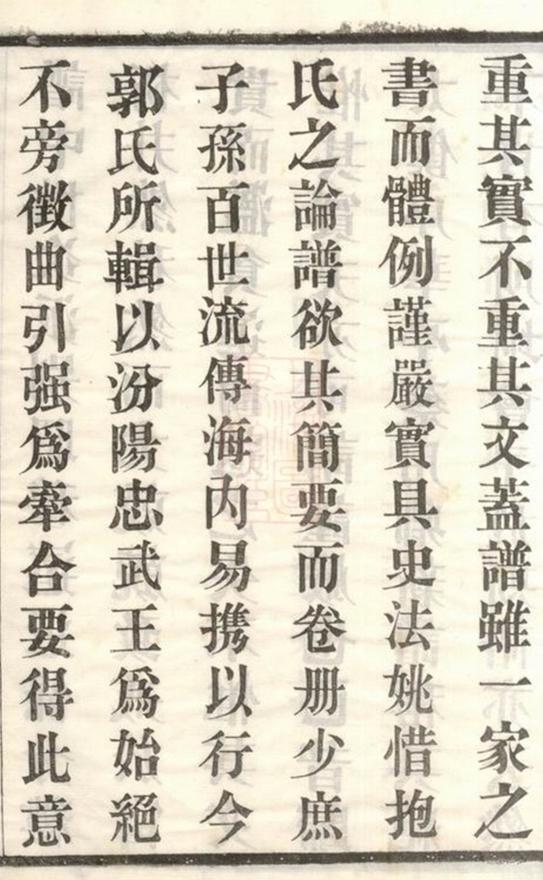 重其實不重其文蓋譜雖一家之
書而體例謹嚴實具史法姚惜抱
氏之論譜欲其簡要而卷册少庶
子孫百世流傳海内易携以行今
郭氏所輯以汾陽忠武王爲始絕
不旁徵曲引强爲牽合要得此意